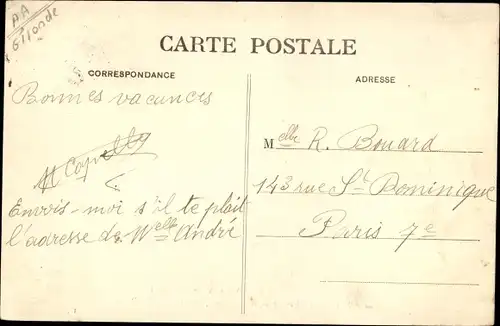 AA
Gironde
CARTE POSTALE
CORRESPONDANCE
ADRESSE
Bonnes vacances
Melle R. Bouard
143 rue St Dominique
Paris 7e
Envois-moi s'il te plait
l'adresse de Melle André